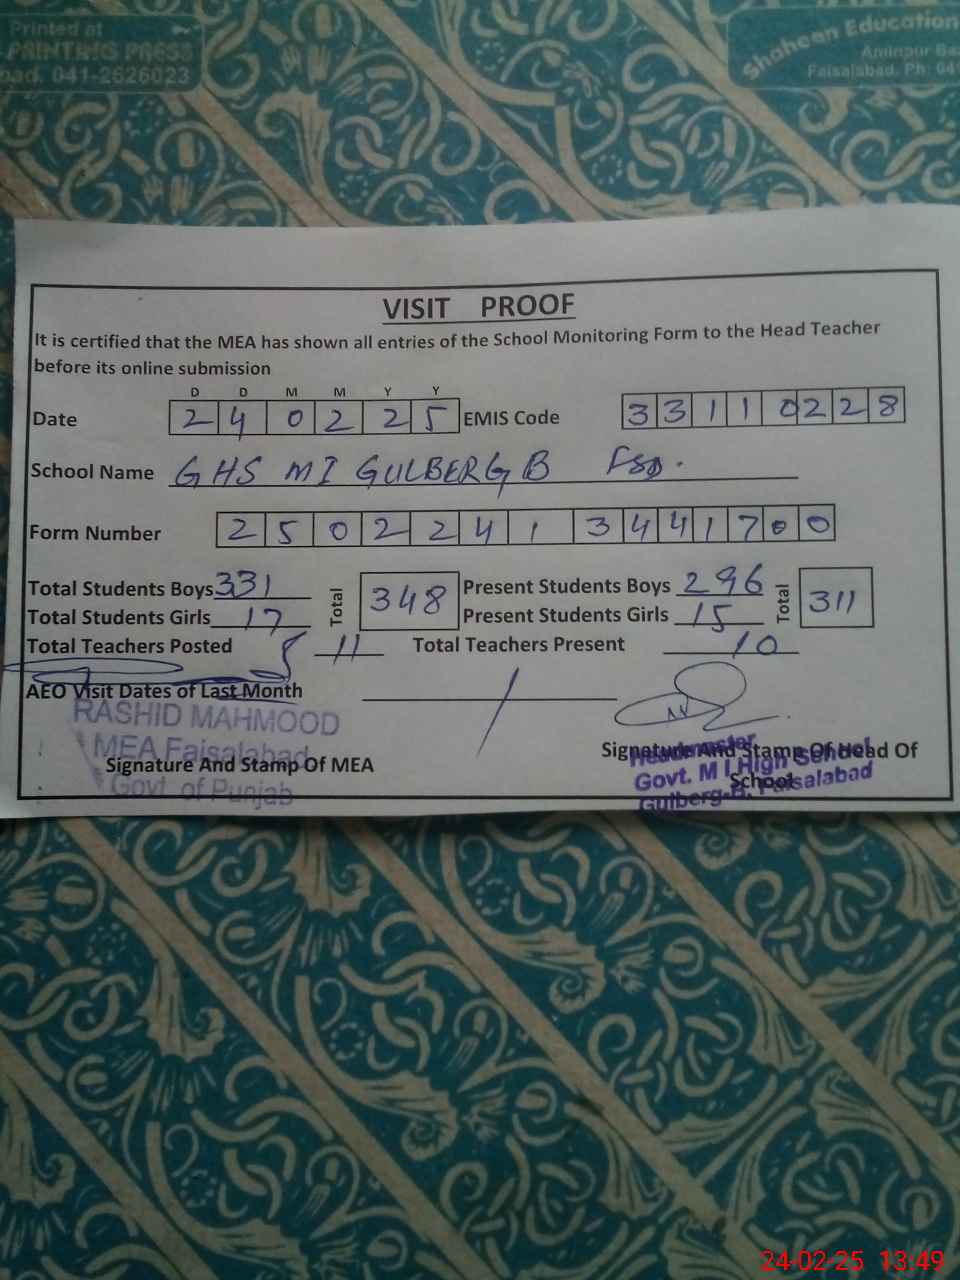 Printed at
PRINTING PRESS
bad. 041-2626023
Shaheen Education
Aminpur Ba
Faisalabad. Ph: 041
VISIT PROOF
It is certified that the MEA has shown all entries of the School Monitoring Form to the Head Teacher
before its online submission
D D M M Y Y
Date 2 4 0 2 2 5 EMIS Code 3 3 1 1 0 2 2 8
School Name GHS MI GULBERG B FSD.
Form Number 2 5 0 2 2 4 1 3 4 4 1 7 0 0
Total Students Boys 331 Total 348 Present Students Boys 296 Total 311
Total Students Girls 17 Present Students Girls 15
Total Teachers Posted 11 Total Teachers Present 10
AEO Visit Dates of Last Month
RASHID MAHMOOD
MEA Faisalabad
Govt. of Punjab
Signature And Stamp Of MEA
Signature And Stamp Of Head Of
School
Headmaster
Govt. M I High School
Gulberg-B, Faisalabad
24-02-25 13:49